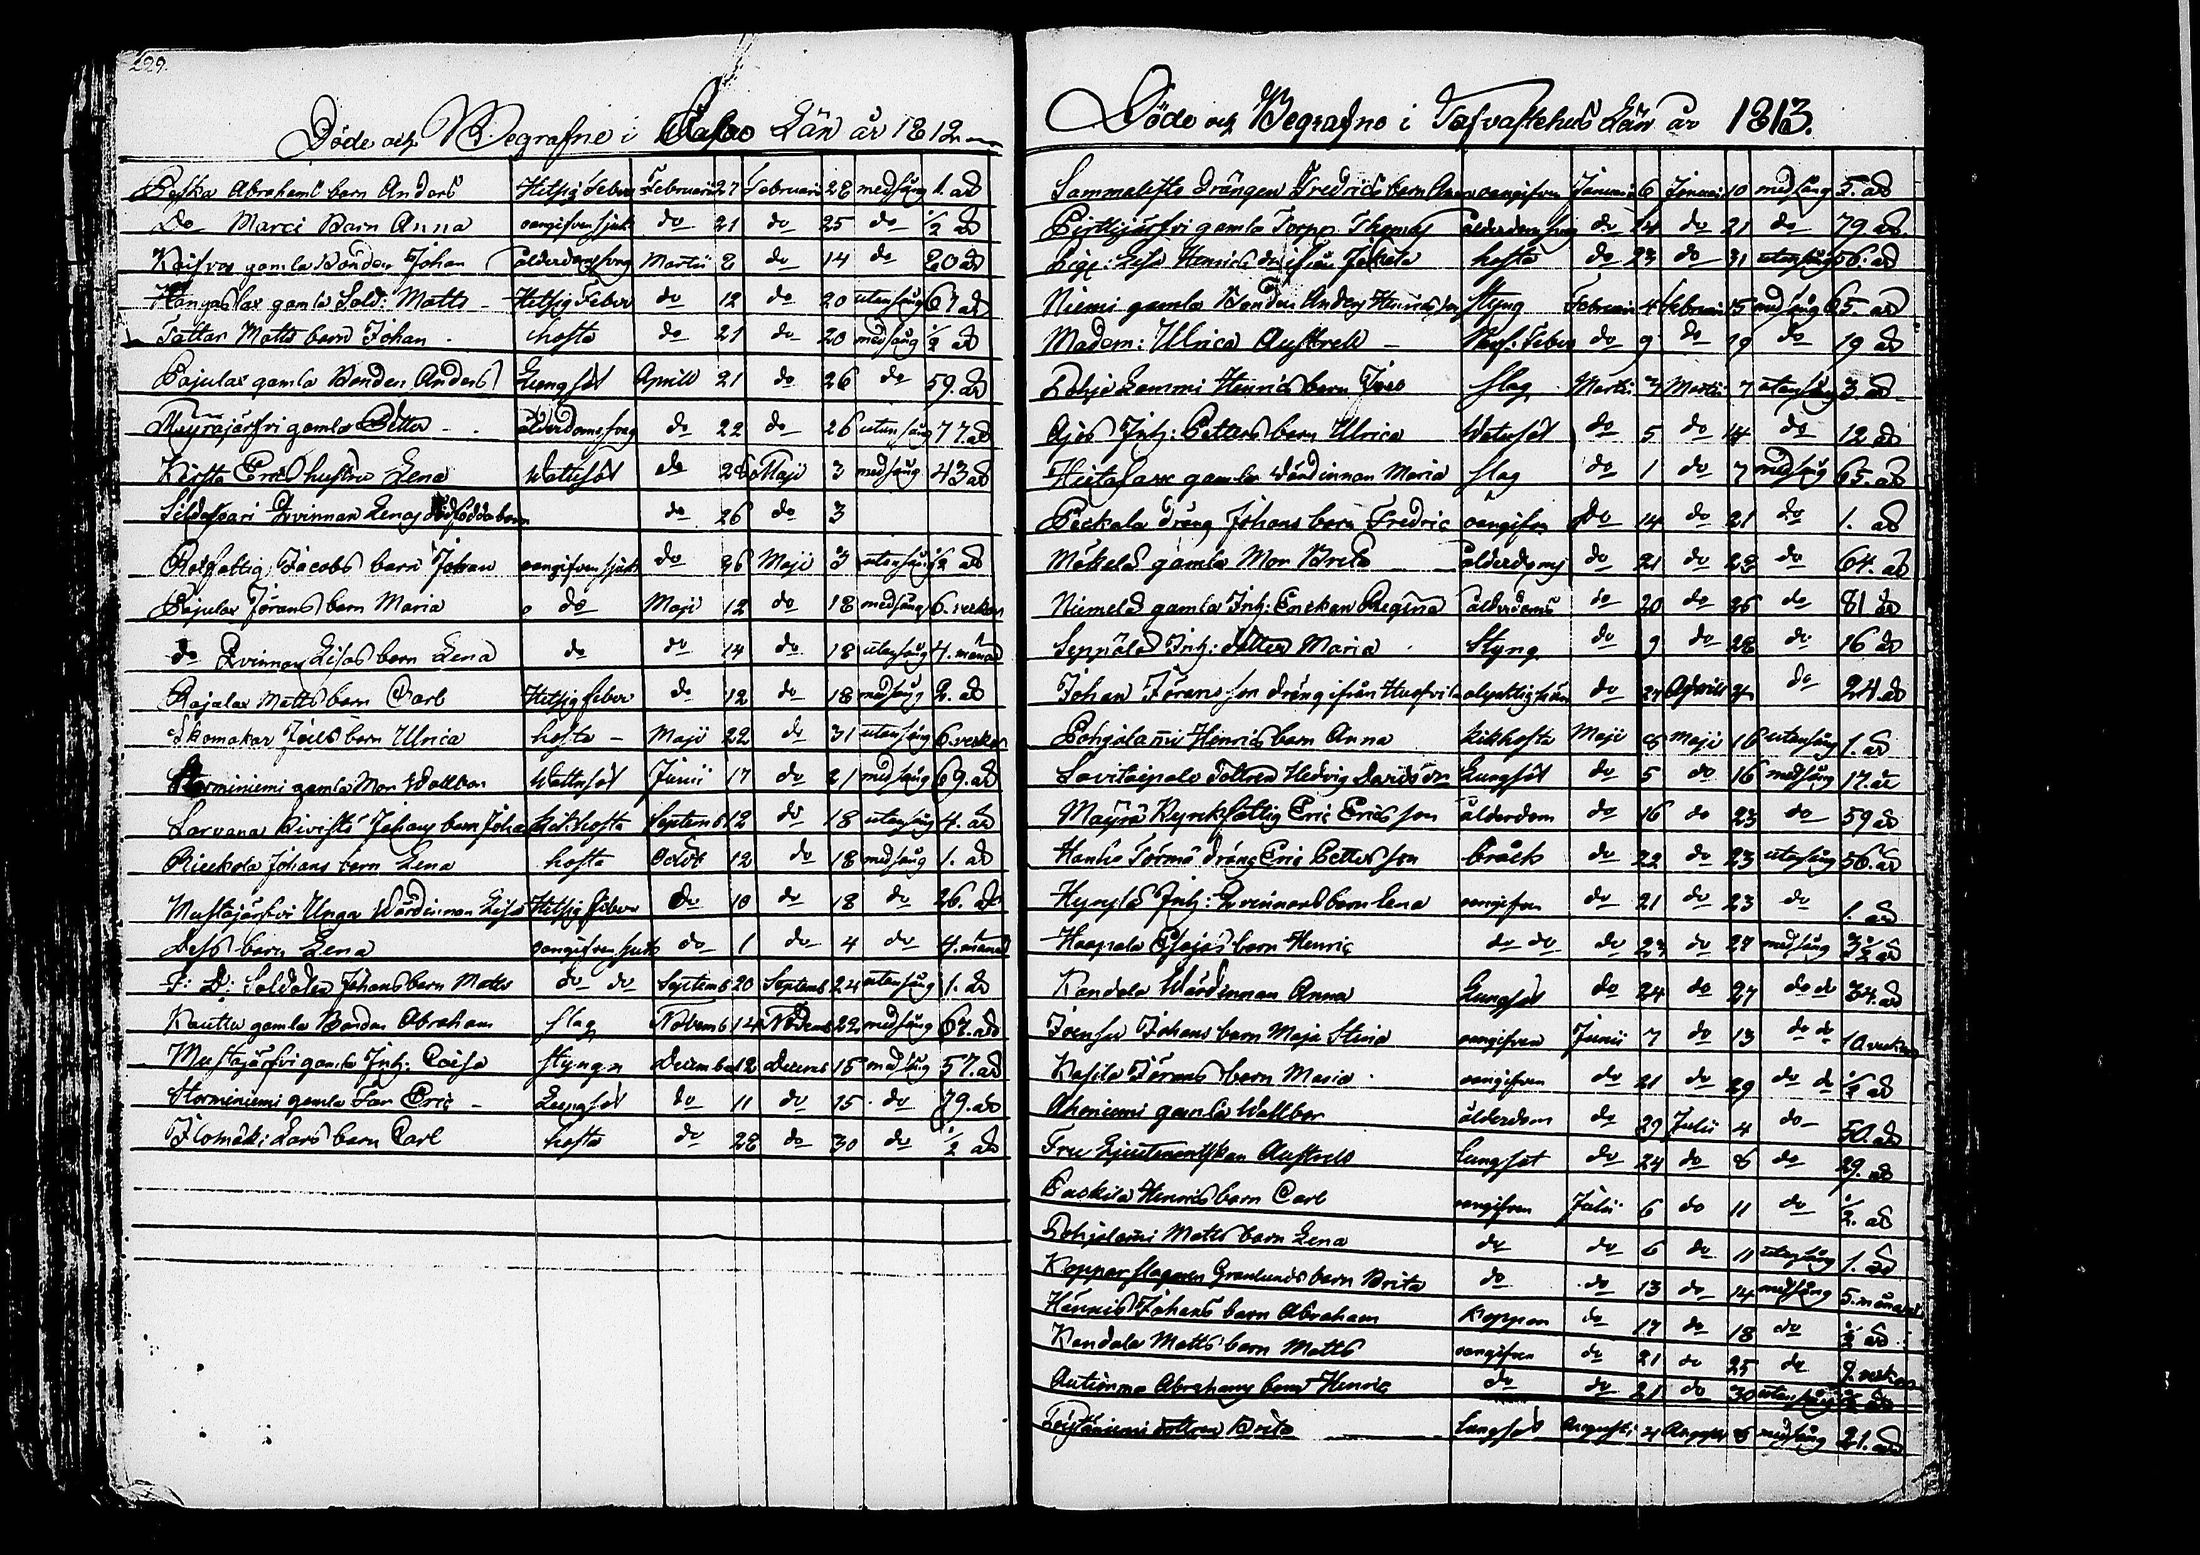 229.
Döde och Begrafne i Wasa Län år 1812
Abrahams barn Anders Hetsig feber Februarii 27 Februarii 28 med sång 1. år
Do Marci Barn Anna oangifven sjuk do 21 do 25 do ½ år
gamla Bonden Johan ålderdomssvag Martii 8 do 14 do 80 år
gamla Sold: Matts Hetsig Feber do 12 do 20 utan sång 67 år
Tattar Matts barn Johan hosta do 21 do 20 med sång ½ år
Pajulax gamla Bonden Anders Lungsot Aprill 21 do 26 do 59. år
Mäyräjärfvi gamla Petter ålderdomssvag do 22 do 26 utan sång 77. år
Erics hustru Lena Wattusot do 28 Maji 3 med sång 43 år
Qvinnan Lenas dödfödda barn do 26 do 3
Rotfattig Jacobs barn Johan oangifven sjuk do 26 Maji 3 utan sång ½ år
Pajulax Jörans barn Maria do Maji 12 do 18 med sång 6. veckor
do Qvinnan Lisas barn Lena do do 14 do 18 utan sång 4. månad
Rajalax Matts barn Carl Hetsig feber do 12 do 18 med sång 2. år
Skomakar barn Ulrica hosta Maji 22 do 31 utan sång 6. veckor
Storminiemi gamla Mor Wallbor Wattusot Junii 17 do 21 med sång 69. år
Johans barn Johan kikhosta Septemb 12 do 18 utan sång 4. år
Johans barn Lena hosta Octob 12 do 18 med sång 1. år
Mustajärfvi Unga Wärdinnan Lisa Hetsig feber do 10 do 18 do 26. år
Dess barn Lena oangifven sjuk do 1 do 4 do 4. månad
F: D: Soldaten Johans barn Matts do do Septemb 20 Septemb 24 utan sång 1. år
Kauttu gamla Bonden Abraham slag Novemb 14 Novemb 22 med sång 67. år
Mustajärfvi gamla Inh: Caisa styngn Decemb 12 Decemb 15 med sång 57. år
Storminiemi gamla Far Eric Lungsot do 11 do 15 do 79. år
Ilomäki Lars barn Carl hosta do 28 do 30 do ½ år
Döde och Begrafne i Tafvastehus Län år 1813.
Sammalisto Drängen Fredrics barn oangifven Januari 6 Januari 10 med sång 5. år
Pirttijärfvi gamla Torpp. Thomas ålderdomssvag do 14 do 21 do 79 år.
Lisa Henrics dr ifrån hosta do 23 do 31 utan sång 56. år
Niemi gamla Bonden Anders Henricsson styng Februari 4 Februari 15 med sång 65. år
Madem: Ulrica Austrell Nerf. Feber do 9 do 19 do 19 år
Pohja Lammi Henrics barn slag Martii 3 Martii 7 utan sång 3 år
Ajos Inh: Petters barn Ulrica Watusot do 5 do 14 do 12 år
gamla Värdinnan Maria slag do 1 do 7 med sång 65. år
Peckala dräng Johans barn Fredric oangifven do 14 do 21 do 1. år
Mäkelä gamla Mor Brita ålderdom do 21 do 28 do 64. år
Niemelä gamla Inh: Enckan Regina ålderdoms do 20 do 26 do 81 år
Seppälä Inh: dotter Maria Styng do 9 do 28 do 16 år
Johan Jöransson dräng ifrån olyckshän do 27 Aprill 4 do 24. år
Pohjalami Henrics barn Anna kikhosta Maji 8 maji 16 utan sång 1. år
Savitaipale dottren Hedvig Davidsdr Lungsot do 5 do 16 med sång 17. år
Mäyrä Kyrckfattig Eric Ericsson ålderdom do 16 do 23 do 59 år
Törmä dräng Eric Pettersson bråck do 22 do 23 utan sång 56. år
Inh: Qvinnans barn Lena oangifven do 21 do 23 do 1. år
Haapala Esajas barn Henric do do do 23 do 27 med sång 3½ år
Kandala Wärdinnan Anna Lungsot do 24 do 27 do do 34. år
Joensu Johans barn Maja Stina oangifven Junii 7 do 13 do do 10 veckor
Kasila Jörans barn Maria oangifven do 21 do 29 do do ½ år
Aheniemi gamla Wallbor ålderdom do 29 Julii 4 do 50. år
Fru Lieutenantskan Austrell Lungsot do 24 do 8 do 29. år
Paskila Henrics barn Carl oangifven Julii 6 do 11 do ½. år
Pohjalami Matts barn Lena do do 6 do 11 utan sång 1. år
Kopparslagaren Granlunds barn Brita do do 13 do 14 med sång 5. månader
Hannis Johans barn Abraham Koppor do 17 do 18 do ½ år
Kandala Matts barn Matts oangifven do 21 do 25 do 2. veckor
Autionma Abrahams barn Henric do do 21 do 30 utan sång ½ år
dottren Brita Lungsot Augusti 4 Augusti 8 med sång 21. år